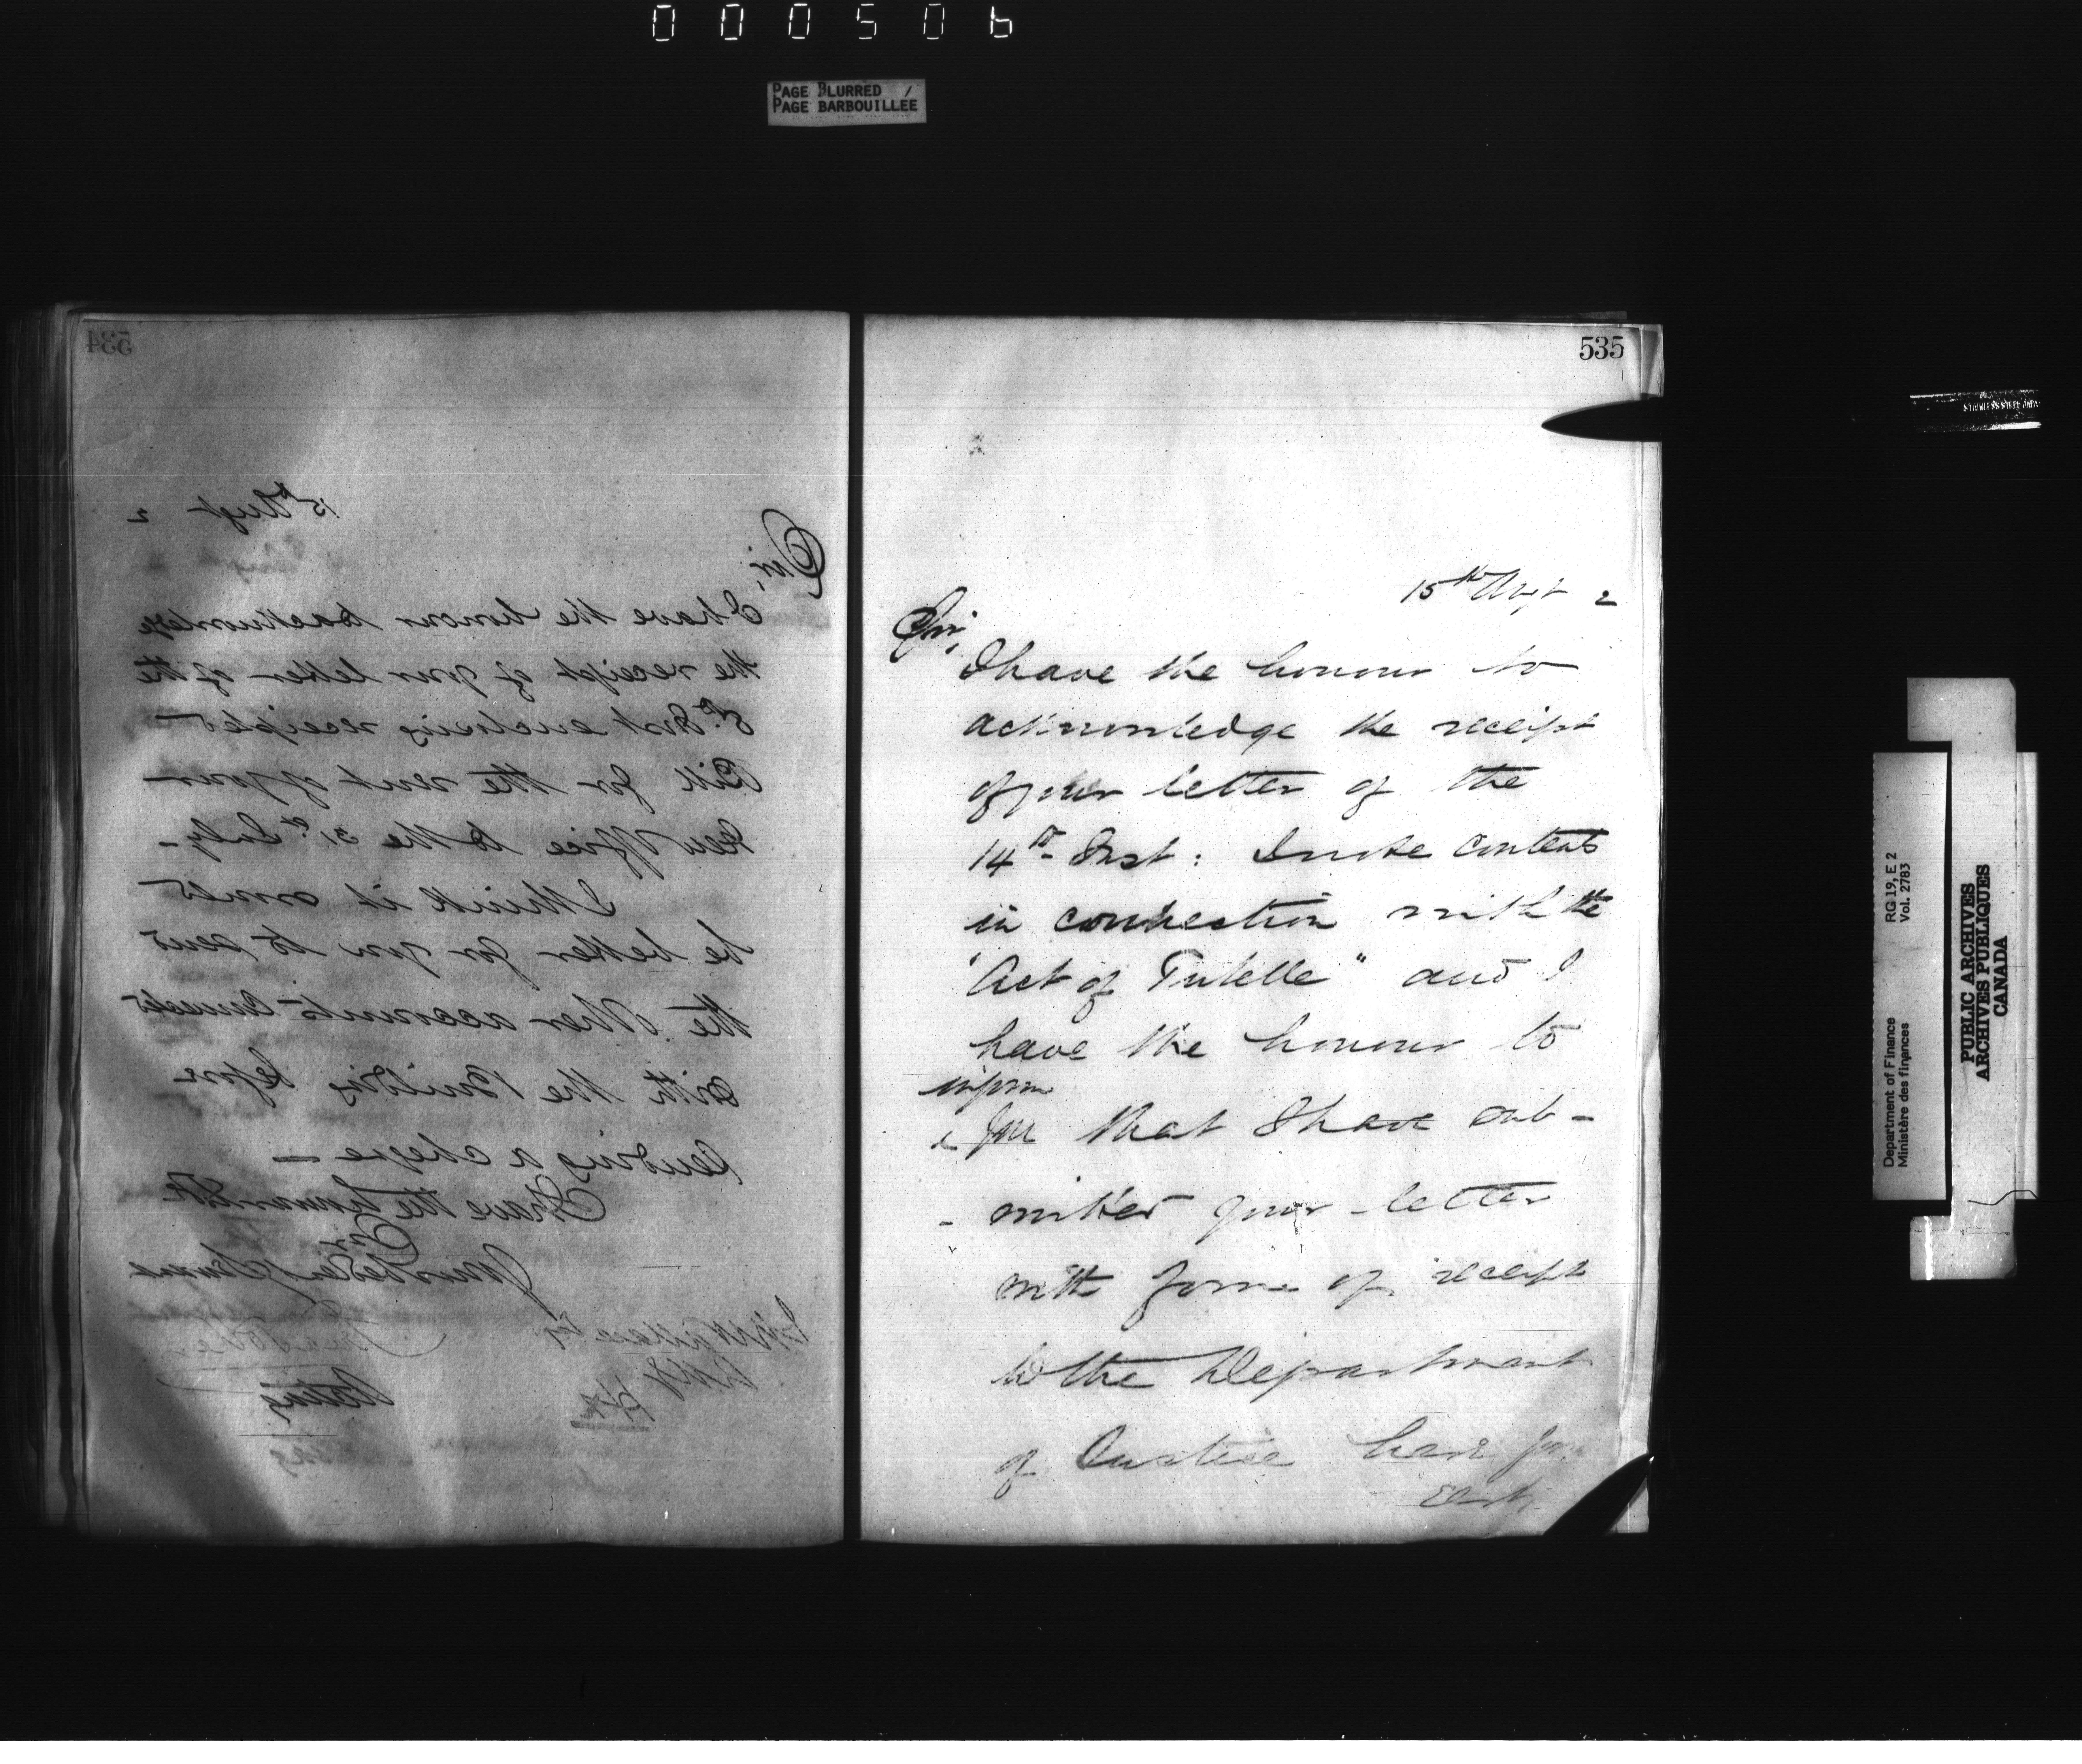 000506
PAGE BLURRED /
PAGE BARBOUILLEE
534
15th Augt 2
Sir,
I have the honour to acknowledge
the receipt of your letter of the
Inst enclosing receipted
Bill for the rent of your
new Office to the 31st July -
I think it would
be better for you to send
the other accounts connected
with the Building before
sending a cheque -
I have the honour to be
Sir
Your Obedt Servant
Acting
535
15th Augt 2
Sir,
I have the honour to
acknowledge the receipt
of your letter of the
14th Inst: I note contents
in connection with the
"Act of Tutelle" and I
have the honour to
inform
you that I have sub-
- mitted your letter
with form of receipt
to the Department
of Justice here for
early
STAINLESS STEEL
Department of Finance RG 19, E 2
Ministère des finances Vol. 2783
PUBLIC ARCHIVES
ARCHIVES PUBLIQUES
CANADA